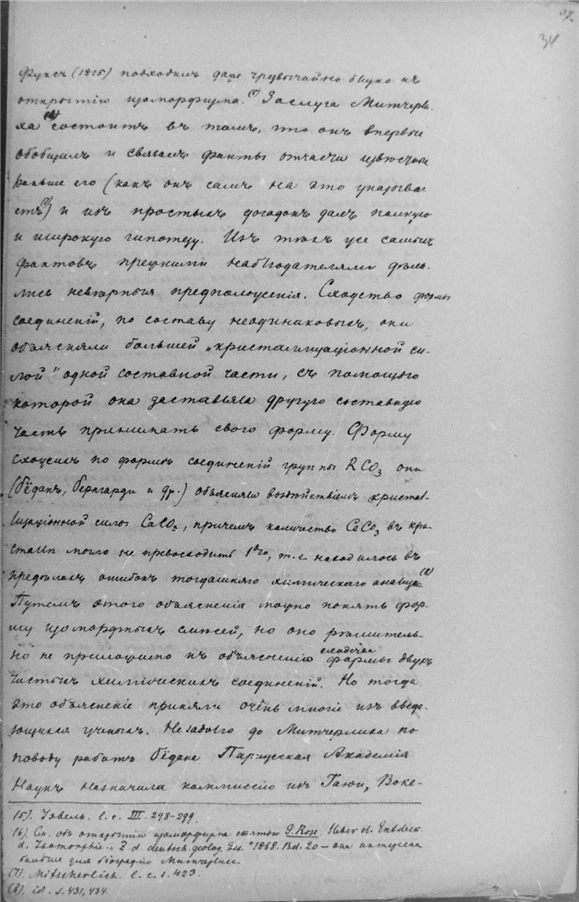 97.
34
Фуксъ (1815) подходилъ даже чрезвычайно близко къ
открытію изоморфизма. Заслуга Митчерли-
ха состоитъ въ томъ, что онъ впервые
обобщилъ и связалъ факты отчасти извѣстные
раньше его (какъ онъ самъ на это указыва-
етъ) и изъ простыхъ догадокъ далъ полную
и широкую гипотезу. Изъ тѣхъ же самыхъ
фактовъ прежними наблюдателями дѣла-
лись невѣрныя предположенія. Сходство формы
соединеній, по составу неодинаковыхъ, они
объясняли большей „кристаллизаціонной си-
лой" одной составной части, съ помощью
которой она заставляла другую составную
часть принимать свою форму. Форму
сходныхъ по формѣ соединеній группы RCO₃ они
(Бёданъ, Бернгарди и др.) объясняли воздѣйствіемъ кристал-
лизаціонной силы CaCO₃, причемъ количество CaCO₃ въ кри-
сталлѣ могло не превосходить 1%, т.е. находилось въ
предѣлахъ ошибокъ тогдашняго химическаго анализа (8)
Путемъ этого объясненія можно понять фор-
му изоморфныхъ смѣсей, но оно рѣшитель-
но не приложимо къ объясненію сходства формы двухъ
чистыхъ химическихъ соединеній. Но тогда
это объясненіе приняли очень многіе изъ выда-
ющихся ученыхъ. Незадолго до Митчерлиха по
поводу работъ Бёдана Парижская Академія
Наукъ назначила коммиссію изъ Гаюи, Воке-
(5). l. c. III. 298-299.
(6) См. объ открытіи изоморфизма статью G. Rose. Ueber d. Entdeck.
d. Isomorphie. Z. d. deutsch. geolog. Ges. 1868. Bd. 20 —
для біографіи Митчерлиха.
(7). Mitscherlich. l. c. s. 423.
(8). id. s. 431, 434.